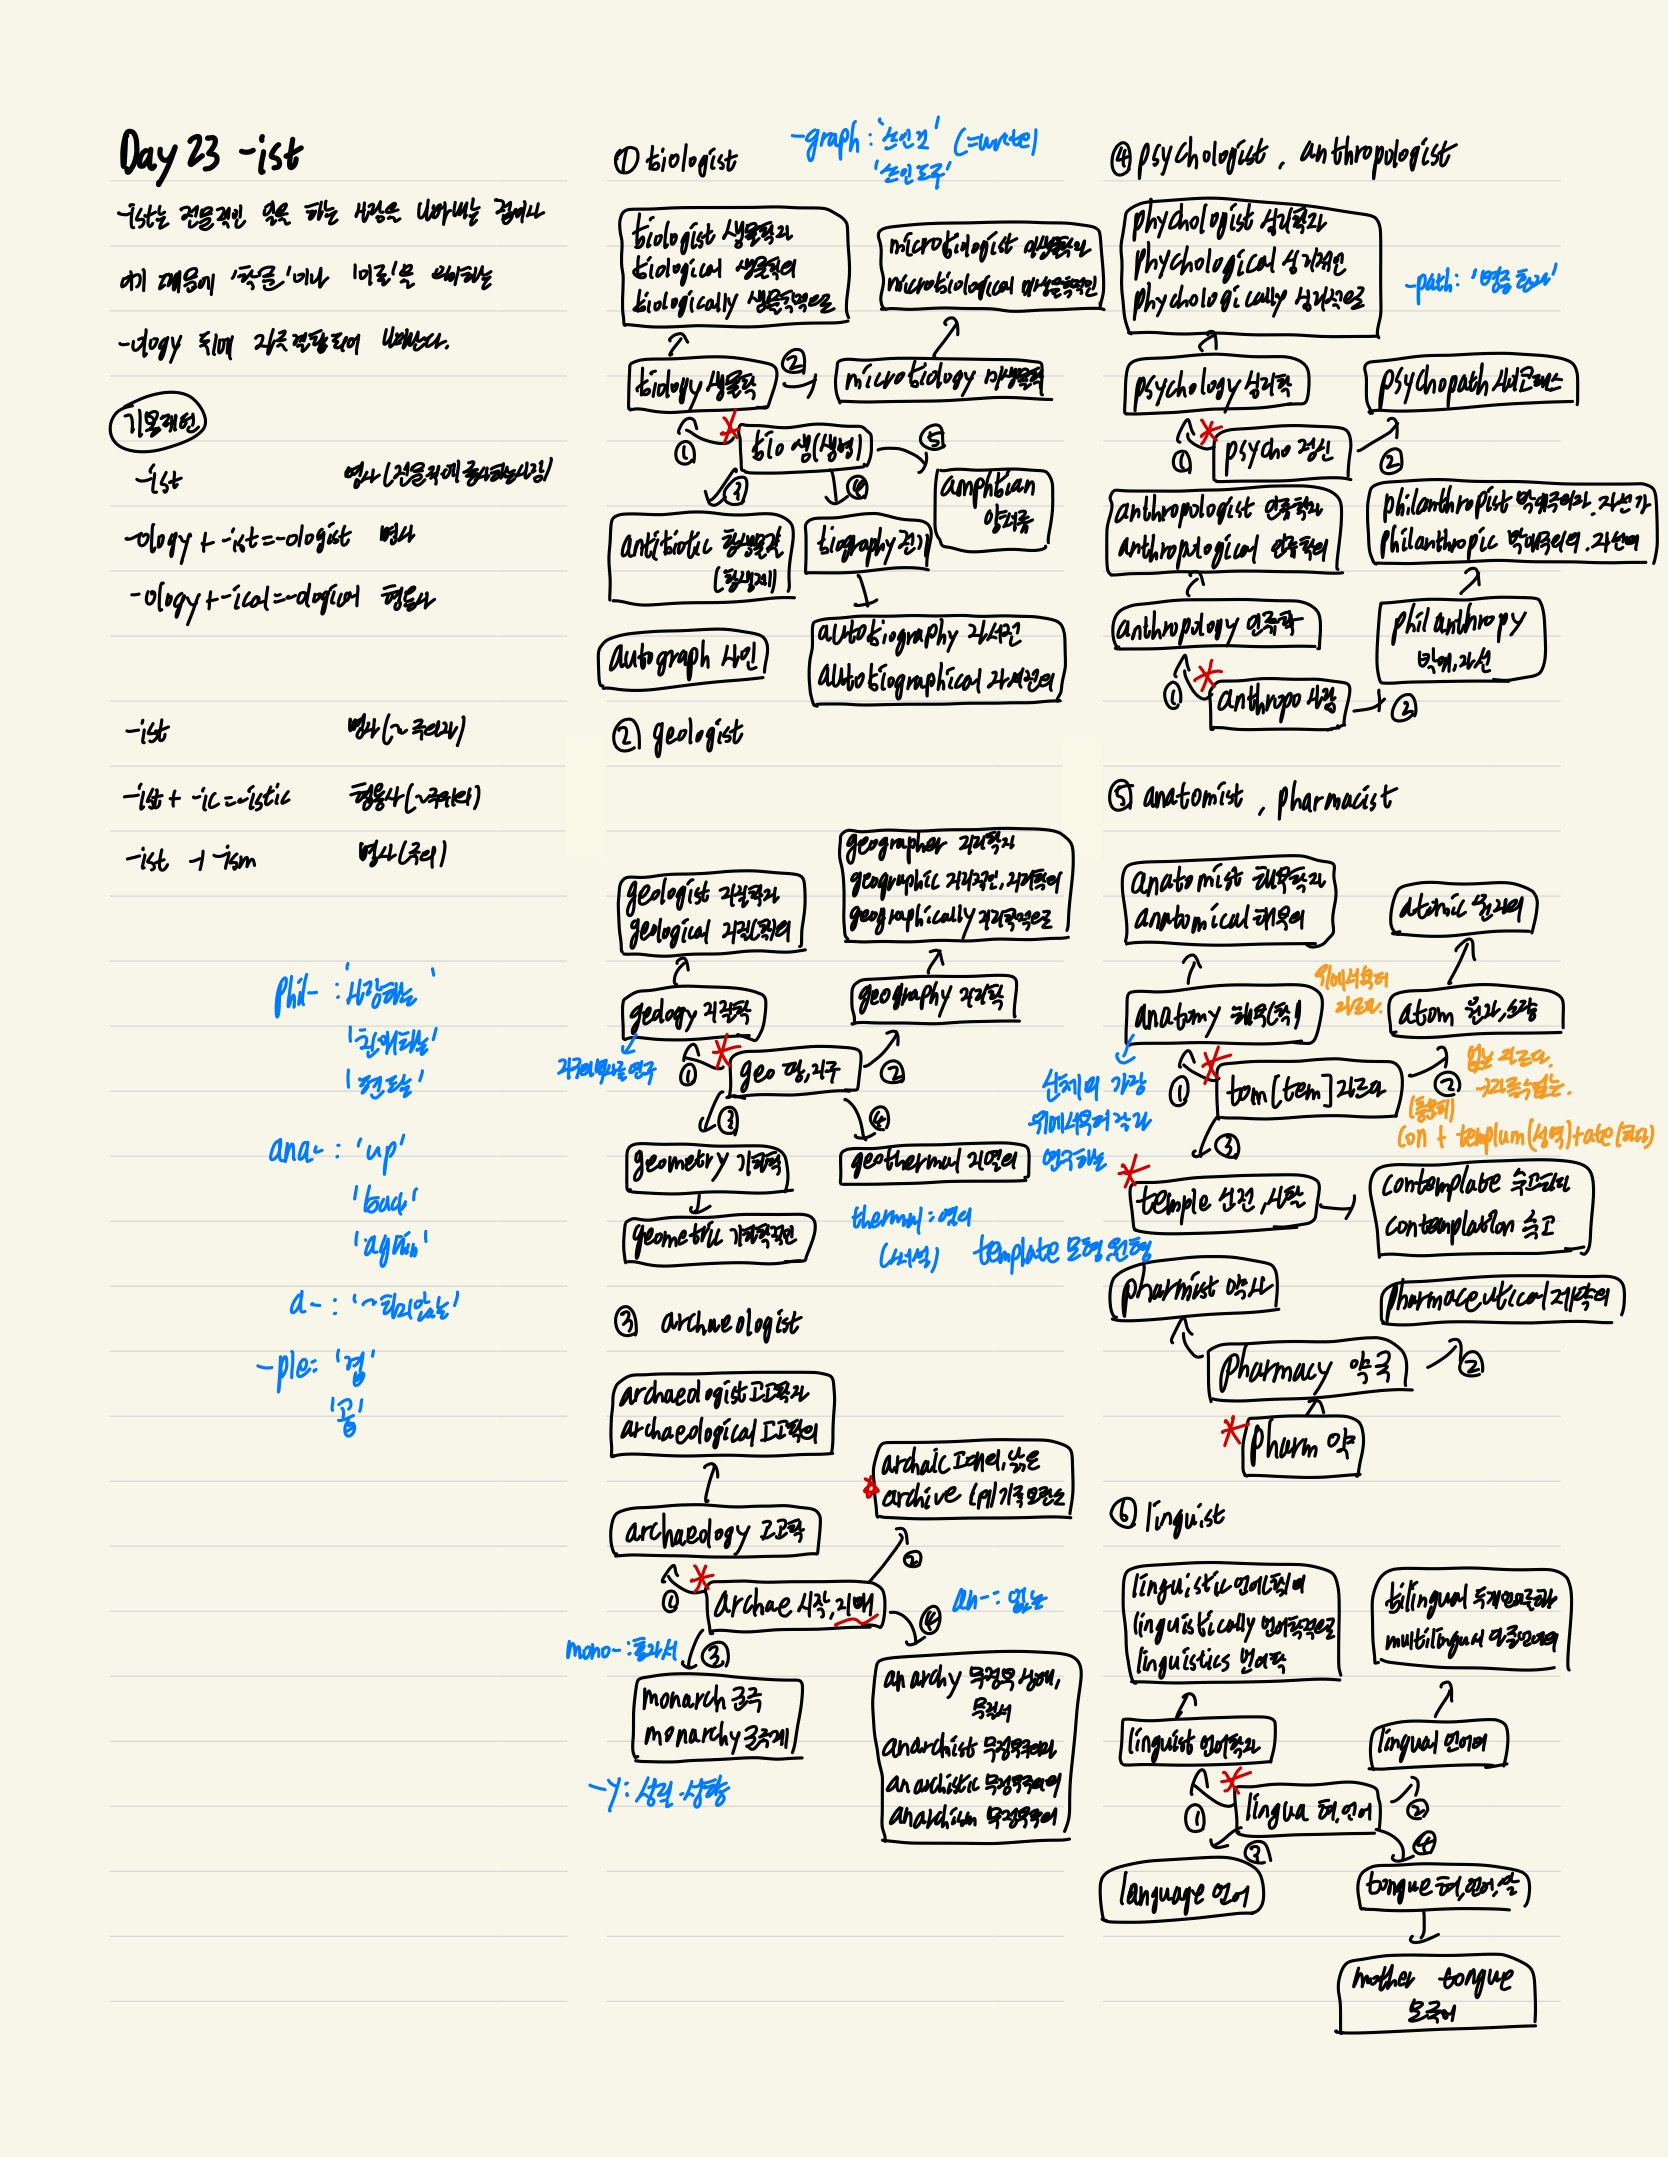 Day 23 -ist
-ist는 전문적인 일을 하는 사람을 나타내는 접미사
이기 때문에 '학문'이나 '이론'을 의미하는
-ology 뒤에 자주 결합되어 나타난다.
기본패턴
-ist 명사(전문직에 종사하는 사람)
-ology + -ist = -ologist 명사
-ology + -ical = -ological 형용사
-ist 명사(~주의자)
-ist + -ic = -istic 형용사(~주의의)
-ist → -ism 명사(주의)
phil- : '사랑하는'
ana- : 'up'
'back'
'again'
a- : '~되지 않는'
-ple : '겹'
① biologist
-graph : '쓰인 것' (=written)
'쓰인 도구'
biologist 생물학자
biological 생물학의
biologically 생물학적으로
microbiologist 미생물학자
microbiological 미생물학적인
biology 생물학
②
microbiology 미생물학
①
bio 생(생명)
⑤
③
④
amphibian
양서류
antibiotic 항생물질
(항생제)
biography 전기
autograph 사인
autobiography 자서전
autobiographical 자서전의
② geologist
geographer 지리학자
geographic 지리적인, 지리학의
geographically 지리학적으로
geologist 지질학자
geological 지질(학)의
geology 지질학
geography 지리학
①
geo 땅, 지구
②
③
④
geometry 기하학
geothermal 지열의
geometric 기하학적인
thermal : 열의
template 모형, 원형
③ archaeologist
archaeologist 고고학자
archaeological 고고학의
archaic 고대의, 낡은
archive (pl) 기록 보관소
archaeology 고고학
①
archae 시작, 지배
②
an- : 없는
④
mono- : 혼자서
③
monarch 군주
monarchy 군주제
-y : 성질·상황
anarchy 무정부 상태,
무질서
anarchist 무정부주의자
anarchistic 무정부주의의
anarchism 무정부주의
④ psychologist, anthropologist
phychologist 심리학자
phychological 심리적인
phychologically 심리적으로
psychology 심리학
psychopath 사이코패스
①
psycho 정신
②
anthropologist 인류학자
anthropological 인류학의
philanthropist 박애주의자, 자선가
philanthropic 박애주의의, 자선의
anthropology 인류학
philanthropy
박애, 자선
①
anthropo 사람
②
⑤ anatomist, pharmacist
anatomist 해부학자
anatomical 해부의
atomic 원자의
위에서부터
자르다.
anatomy 해부(학)
atom 원자, 소량
신체의 가장
위에서부터 잘라
연구하는
①
tom[tem] 자르다
②
con + templum(성역) + ate(하다)
③
temple 신전, 사찰
contemplate 숙고하다
contemplation 숙고
pharmist 약사
pharmaceutical 제약의
pharmacy 약국
②
pharm 약
⑥ linguist
linguistic 언어(학)의
linguistically 언어학적으로
linguistics 언어학
bilingual 두 개 언어를 하는
multilingual 다중언어의
linguist 언어학자
lingual 언어의
①
lingua 혀, 언어
②
③
④
language 언어
tongue 혀, 언어, 말
mother tongue
모국어